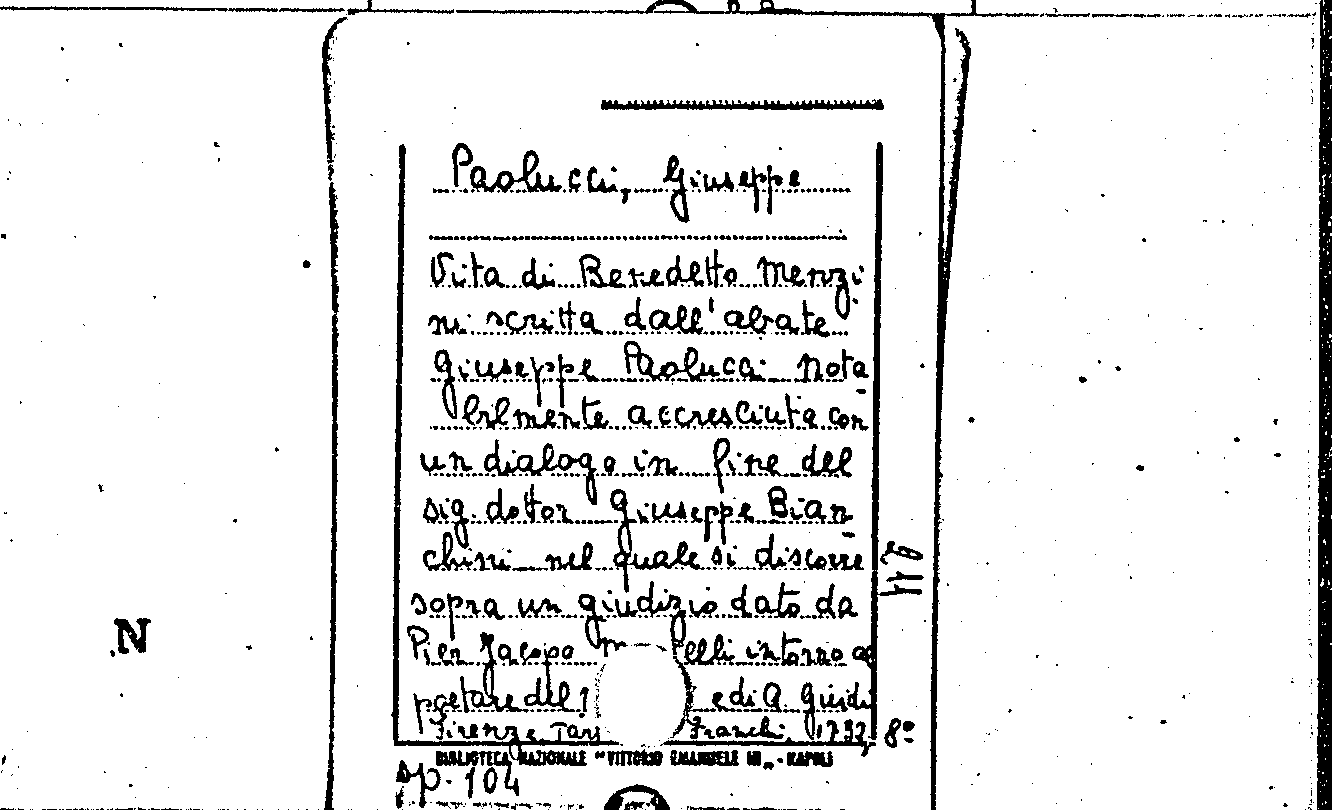 Paolucci, Giuseppe
Vita di Benedetto Menzi
ni scritta dall'abate
Giuseppe Paolucci nota
bilmente accresciuta con
un dialogo in fine del
sig. dottor Giuseppe Bian
chini nel quale si discorre
sopra un giudizio dato da
Pier Jacopo M elli intorno al
poetare del e di A. Guidi
Firenze Franchi, 1732, 8º
BIBLIOTECA NAZIONALE "VITTORIO EMANUELE III" - NAPOLI
pp. 104
N